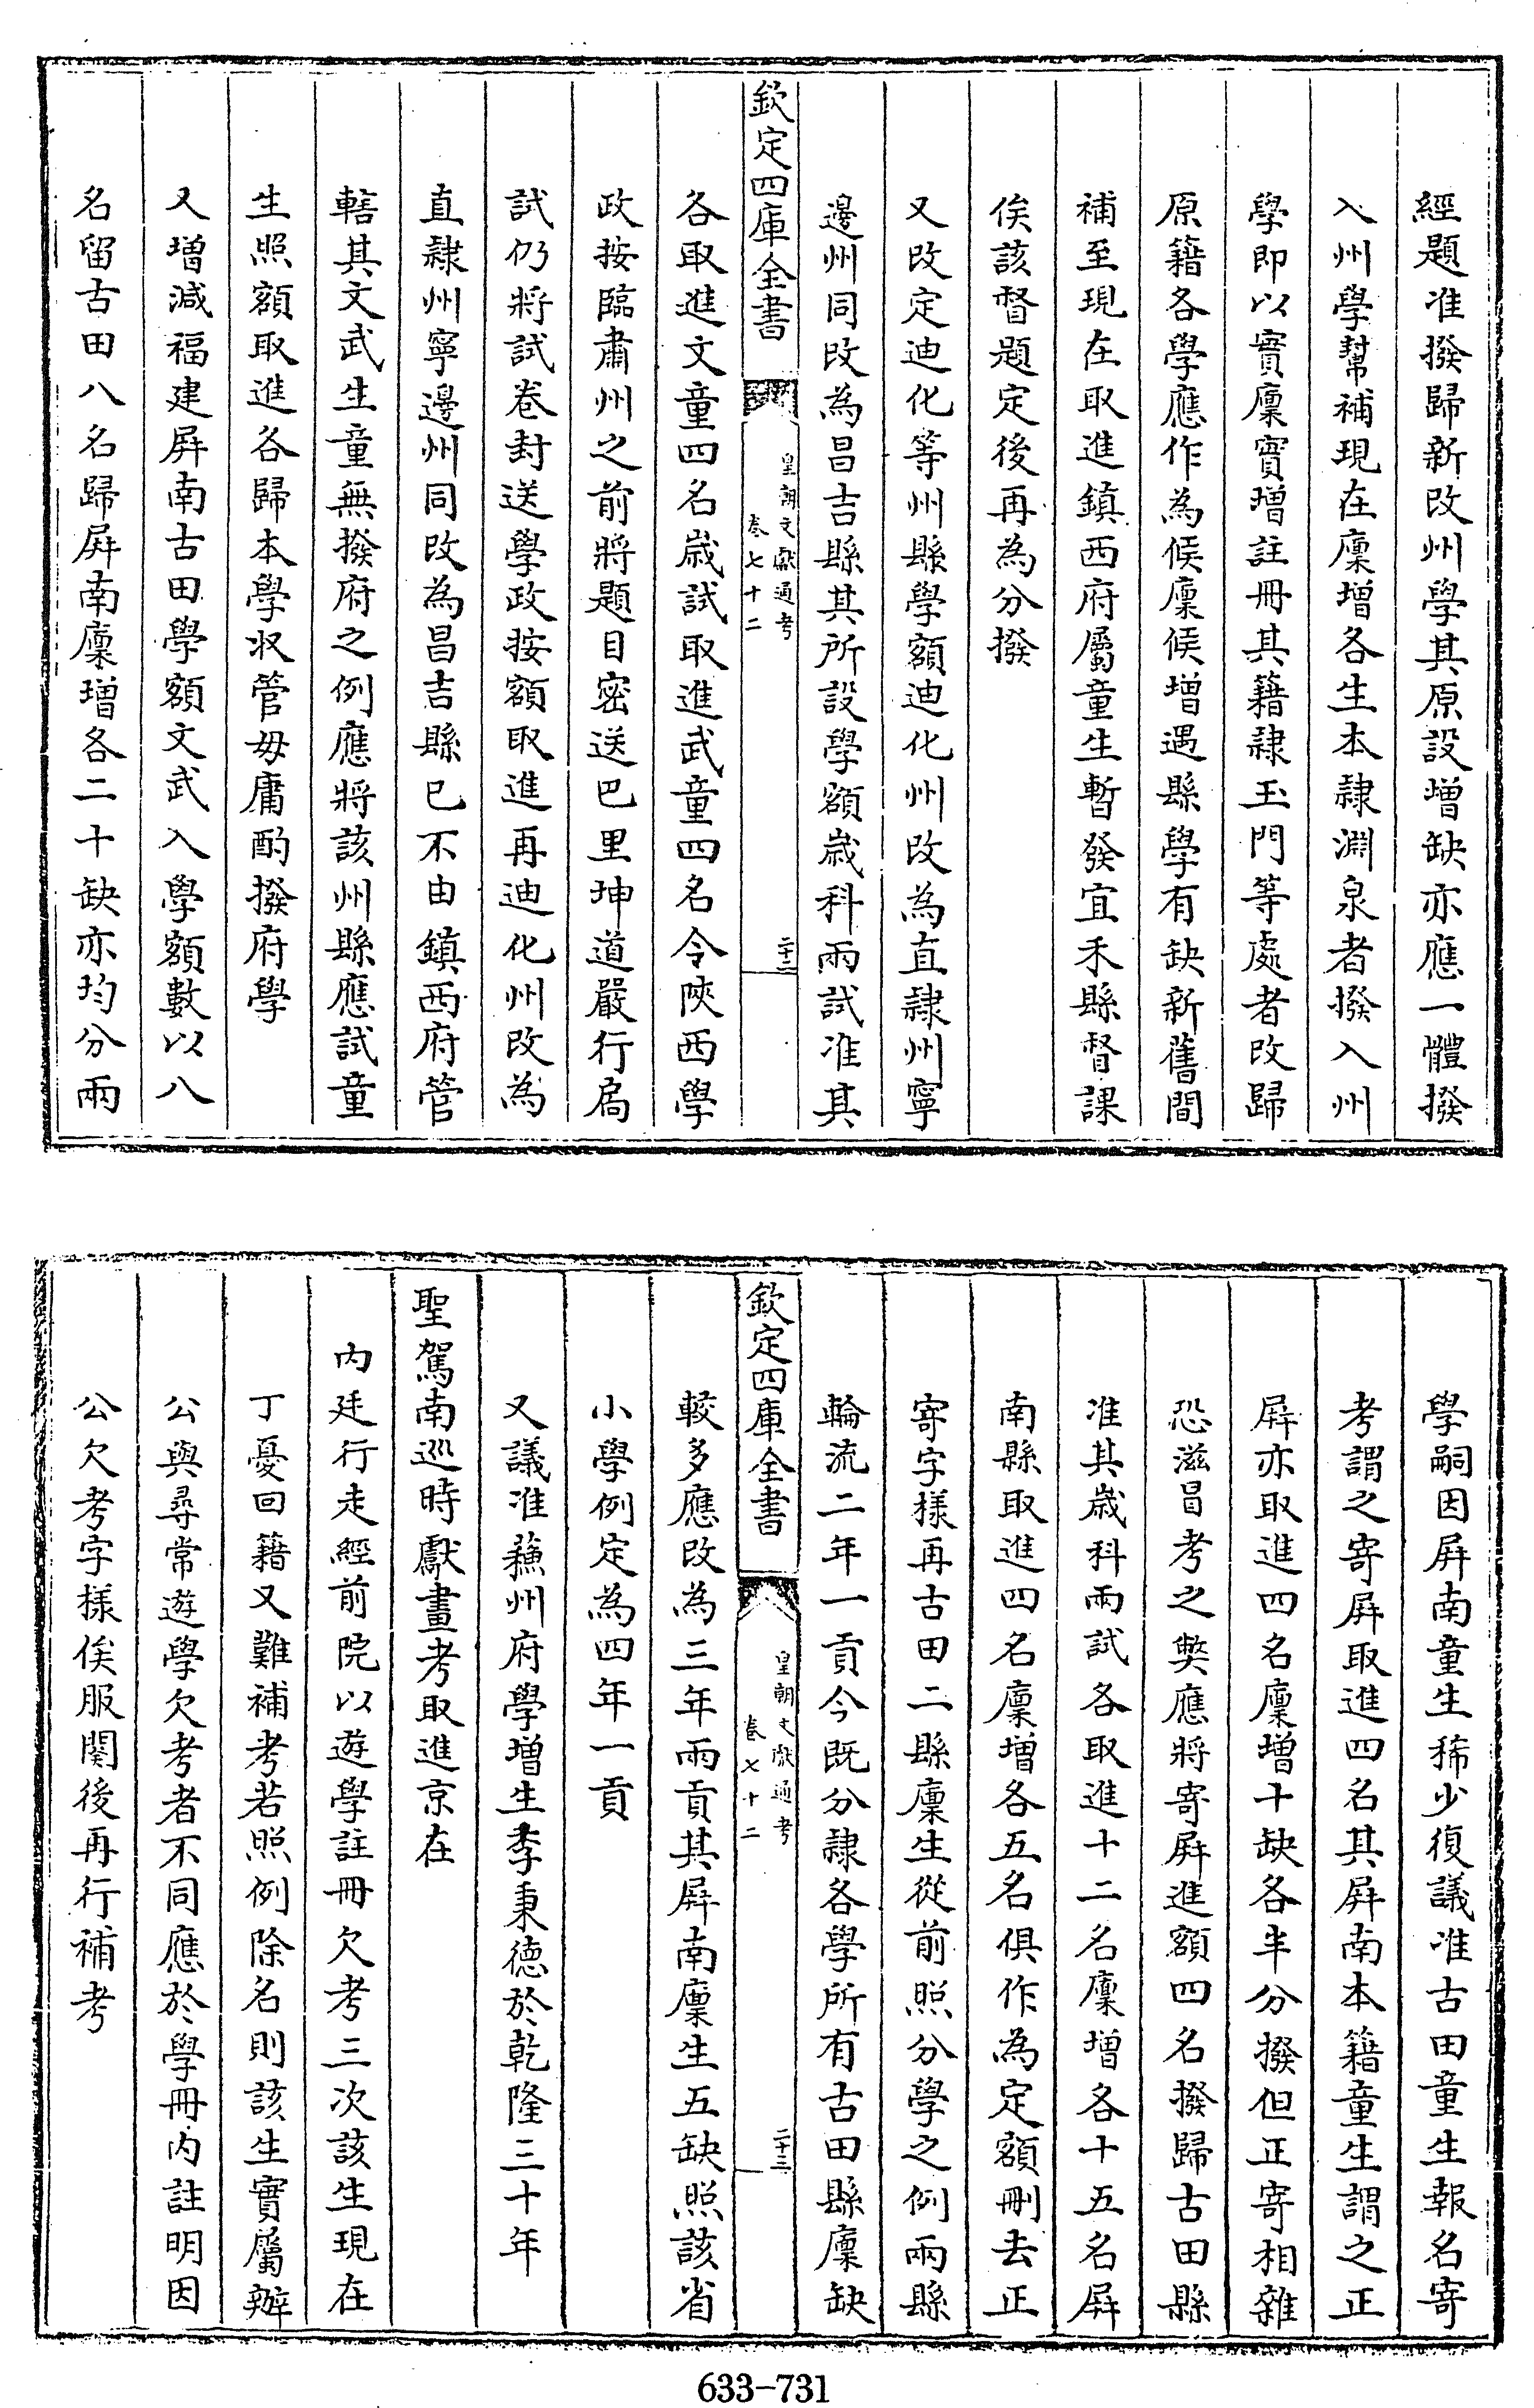 經題准撥歸新改州學其原設增缺亦應一體撥
入州學幫補現在廩增各生本隸淵泉者撥入州
學即以實廩實增註冊其籍隸玉門等處者改歸
原籍各學應作為候廩候增遇縣學有缺新舊間
補至現在取進鎮西府屬童生暫發宜禾縣督課
俟該督題定後再為分撥
又改定迪化等州縣學額迪化州改為直隸州寧
邊州同改為昌吉縣其所設學額歲科兩試准其
欽定四庫全書
皇朝文獻通考
卷七十二
二十二
各取進文童四名歲試取進武童四名令陝西學
政按臨肅州之前將題目密送巴里坤道嚴行扃
試仍將試卷封送學政按額取進再迪化州改為
直隸州寧邊州同改為昌吉縣已不由鎮西府管
轄其文武生童無撥府之例應將該州縣應試童
生照額取進各歸本學收管毋庸酌撥府學
又增減福建屏南古田學額文武入學額數以八
名留古田八名歸屏南廩增各二十缺亦均分兩
學嗣因屏南童生稀少復議准古田童生報名寄
考謂之寄屏取進四名其屏南本籍童生謂之正
屏亦取進四名廩增十缺各半分撥但正寄相雜
恐滋冒考之弊應將寄屏進額四名撥歸古田縣
准其歲科兩試各取進十二名廩增各十五名屏
南縣取進四名廩增各五名俱作為定額刪去正
寄字樣再古田二縣廩生從前照分學之例兩縣
輪流二年一貢今既分隸各學所有古田縣廩缺
欽定四庫全書
皇朝文獻通考
卷七十二
二十三
較多應改為三年兩貢其屏南廩生五缺照該省
小學例定為四年一貢
又議准蘓州府學增生李秉德於乾隆三十年
聖駕南巡時獻畫考取進京在
內廷行走經前院以遊學註冊欠考三次該生現在
丁憂回籍又難補考若照例除名則該生實屬辦
公與尋常遊學欠考者不同應於學冊內註明因
公欠考字樣俟服闋後再行補考
633-731